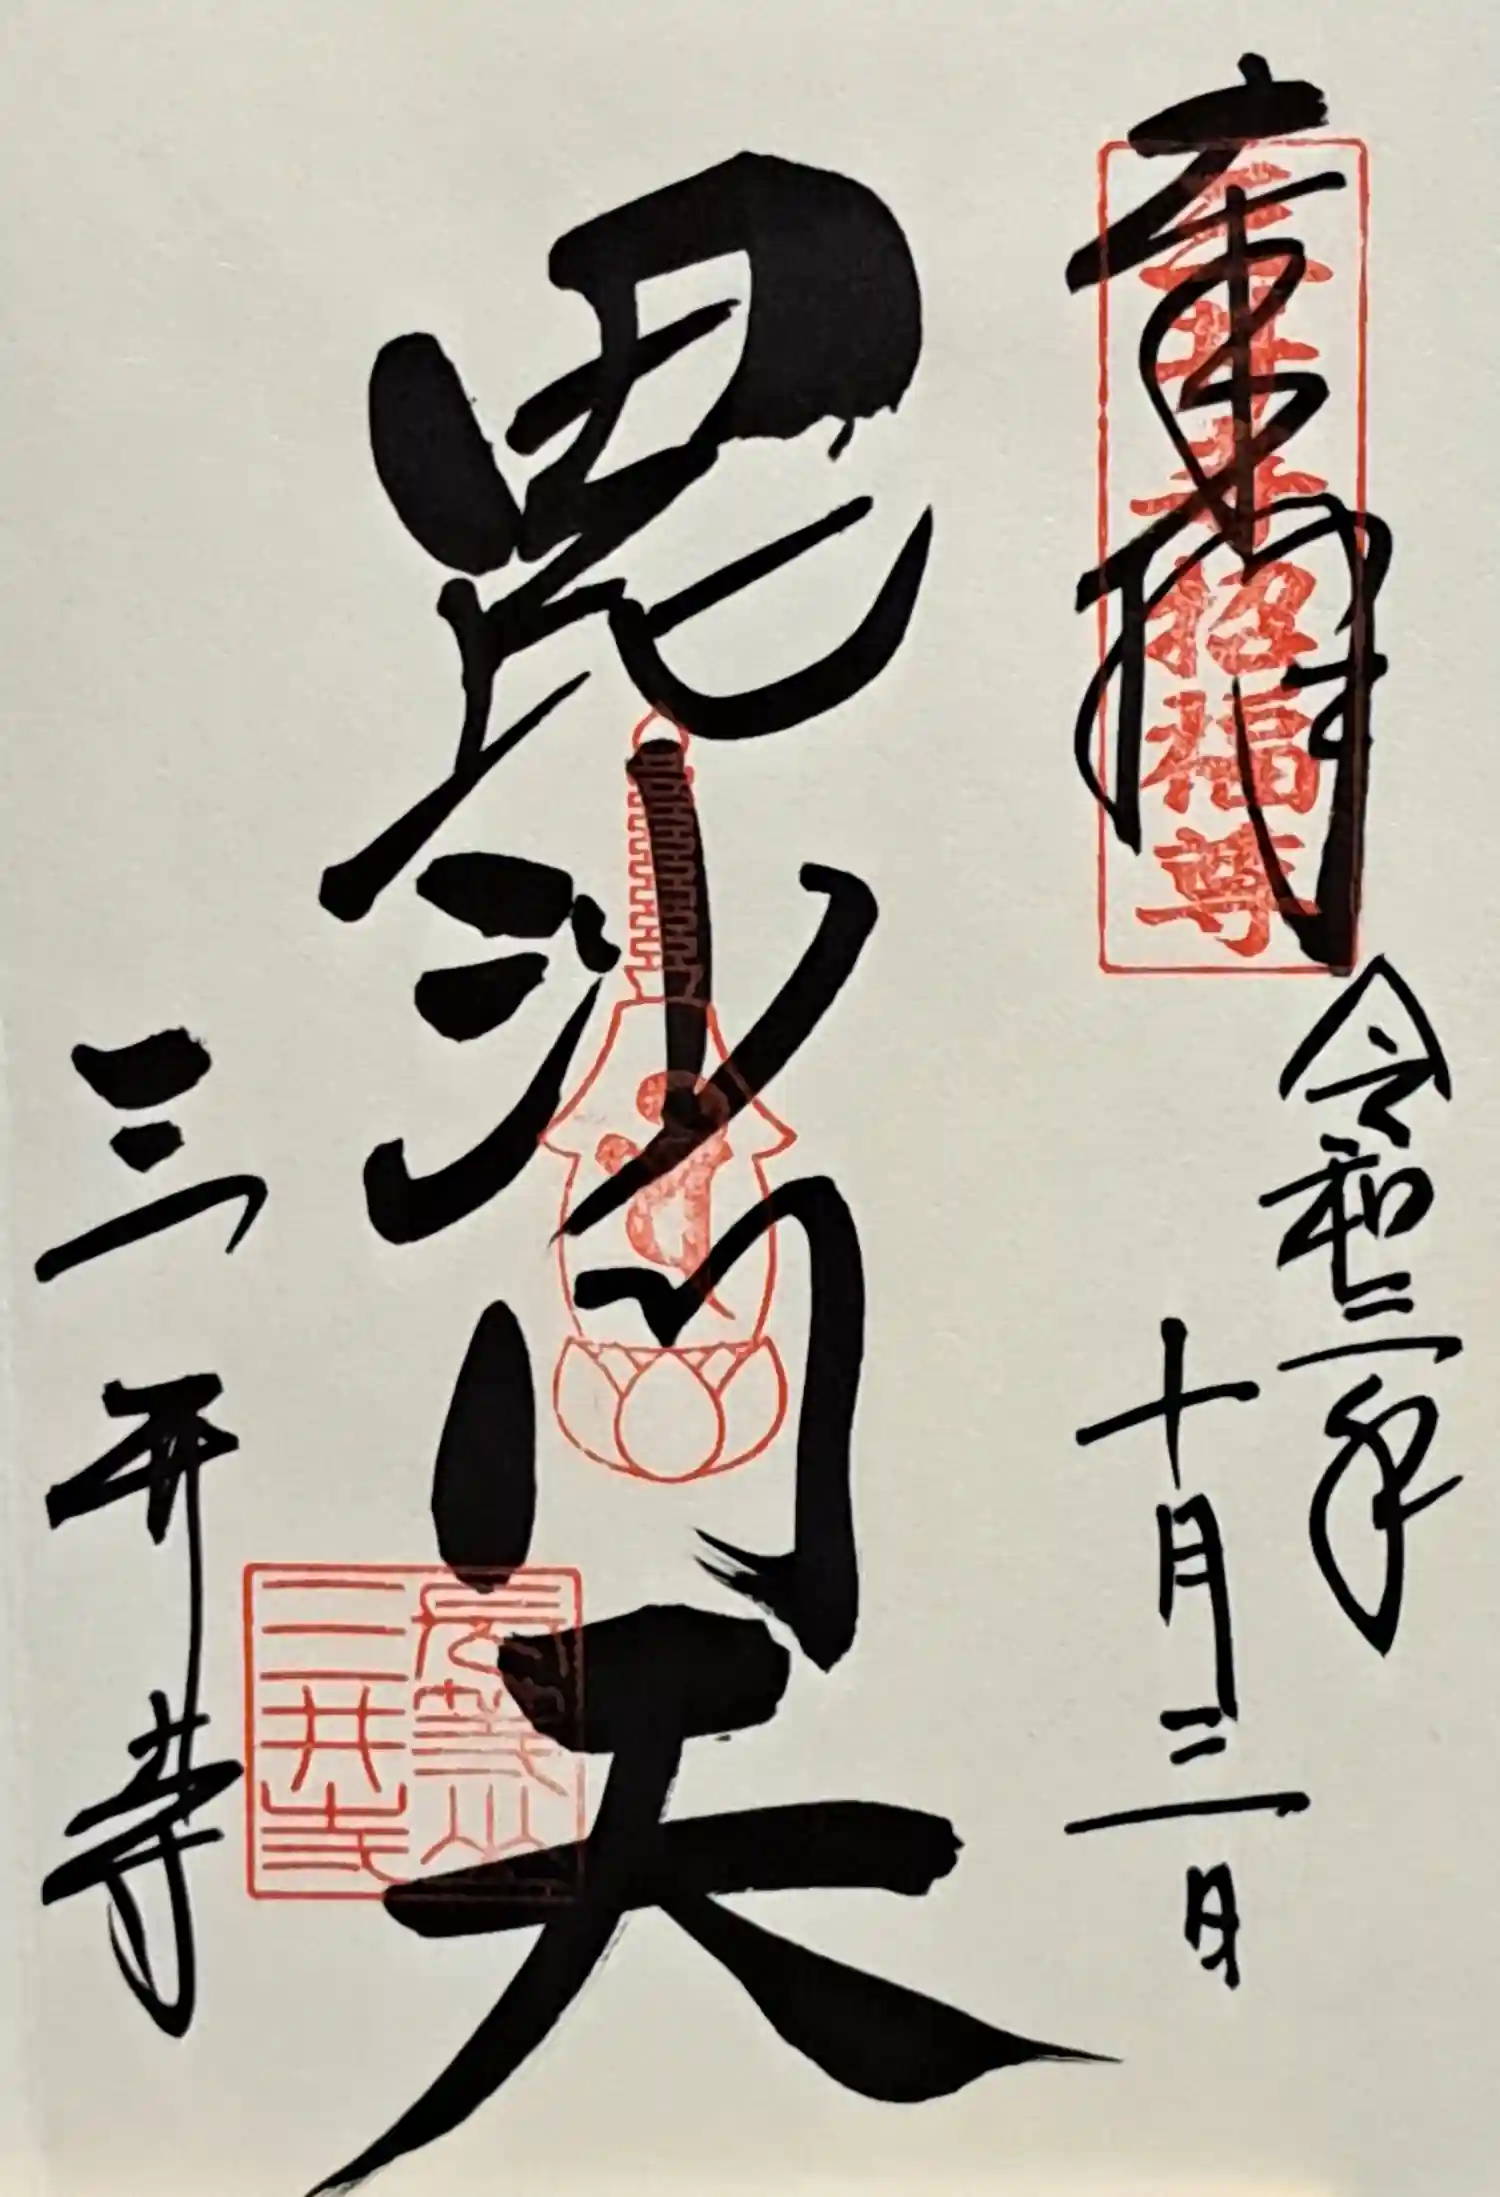 奉拝
招福尊
令和三年
十月三日
毘沙門天
長等山
三井寺
三井寺